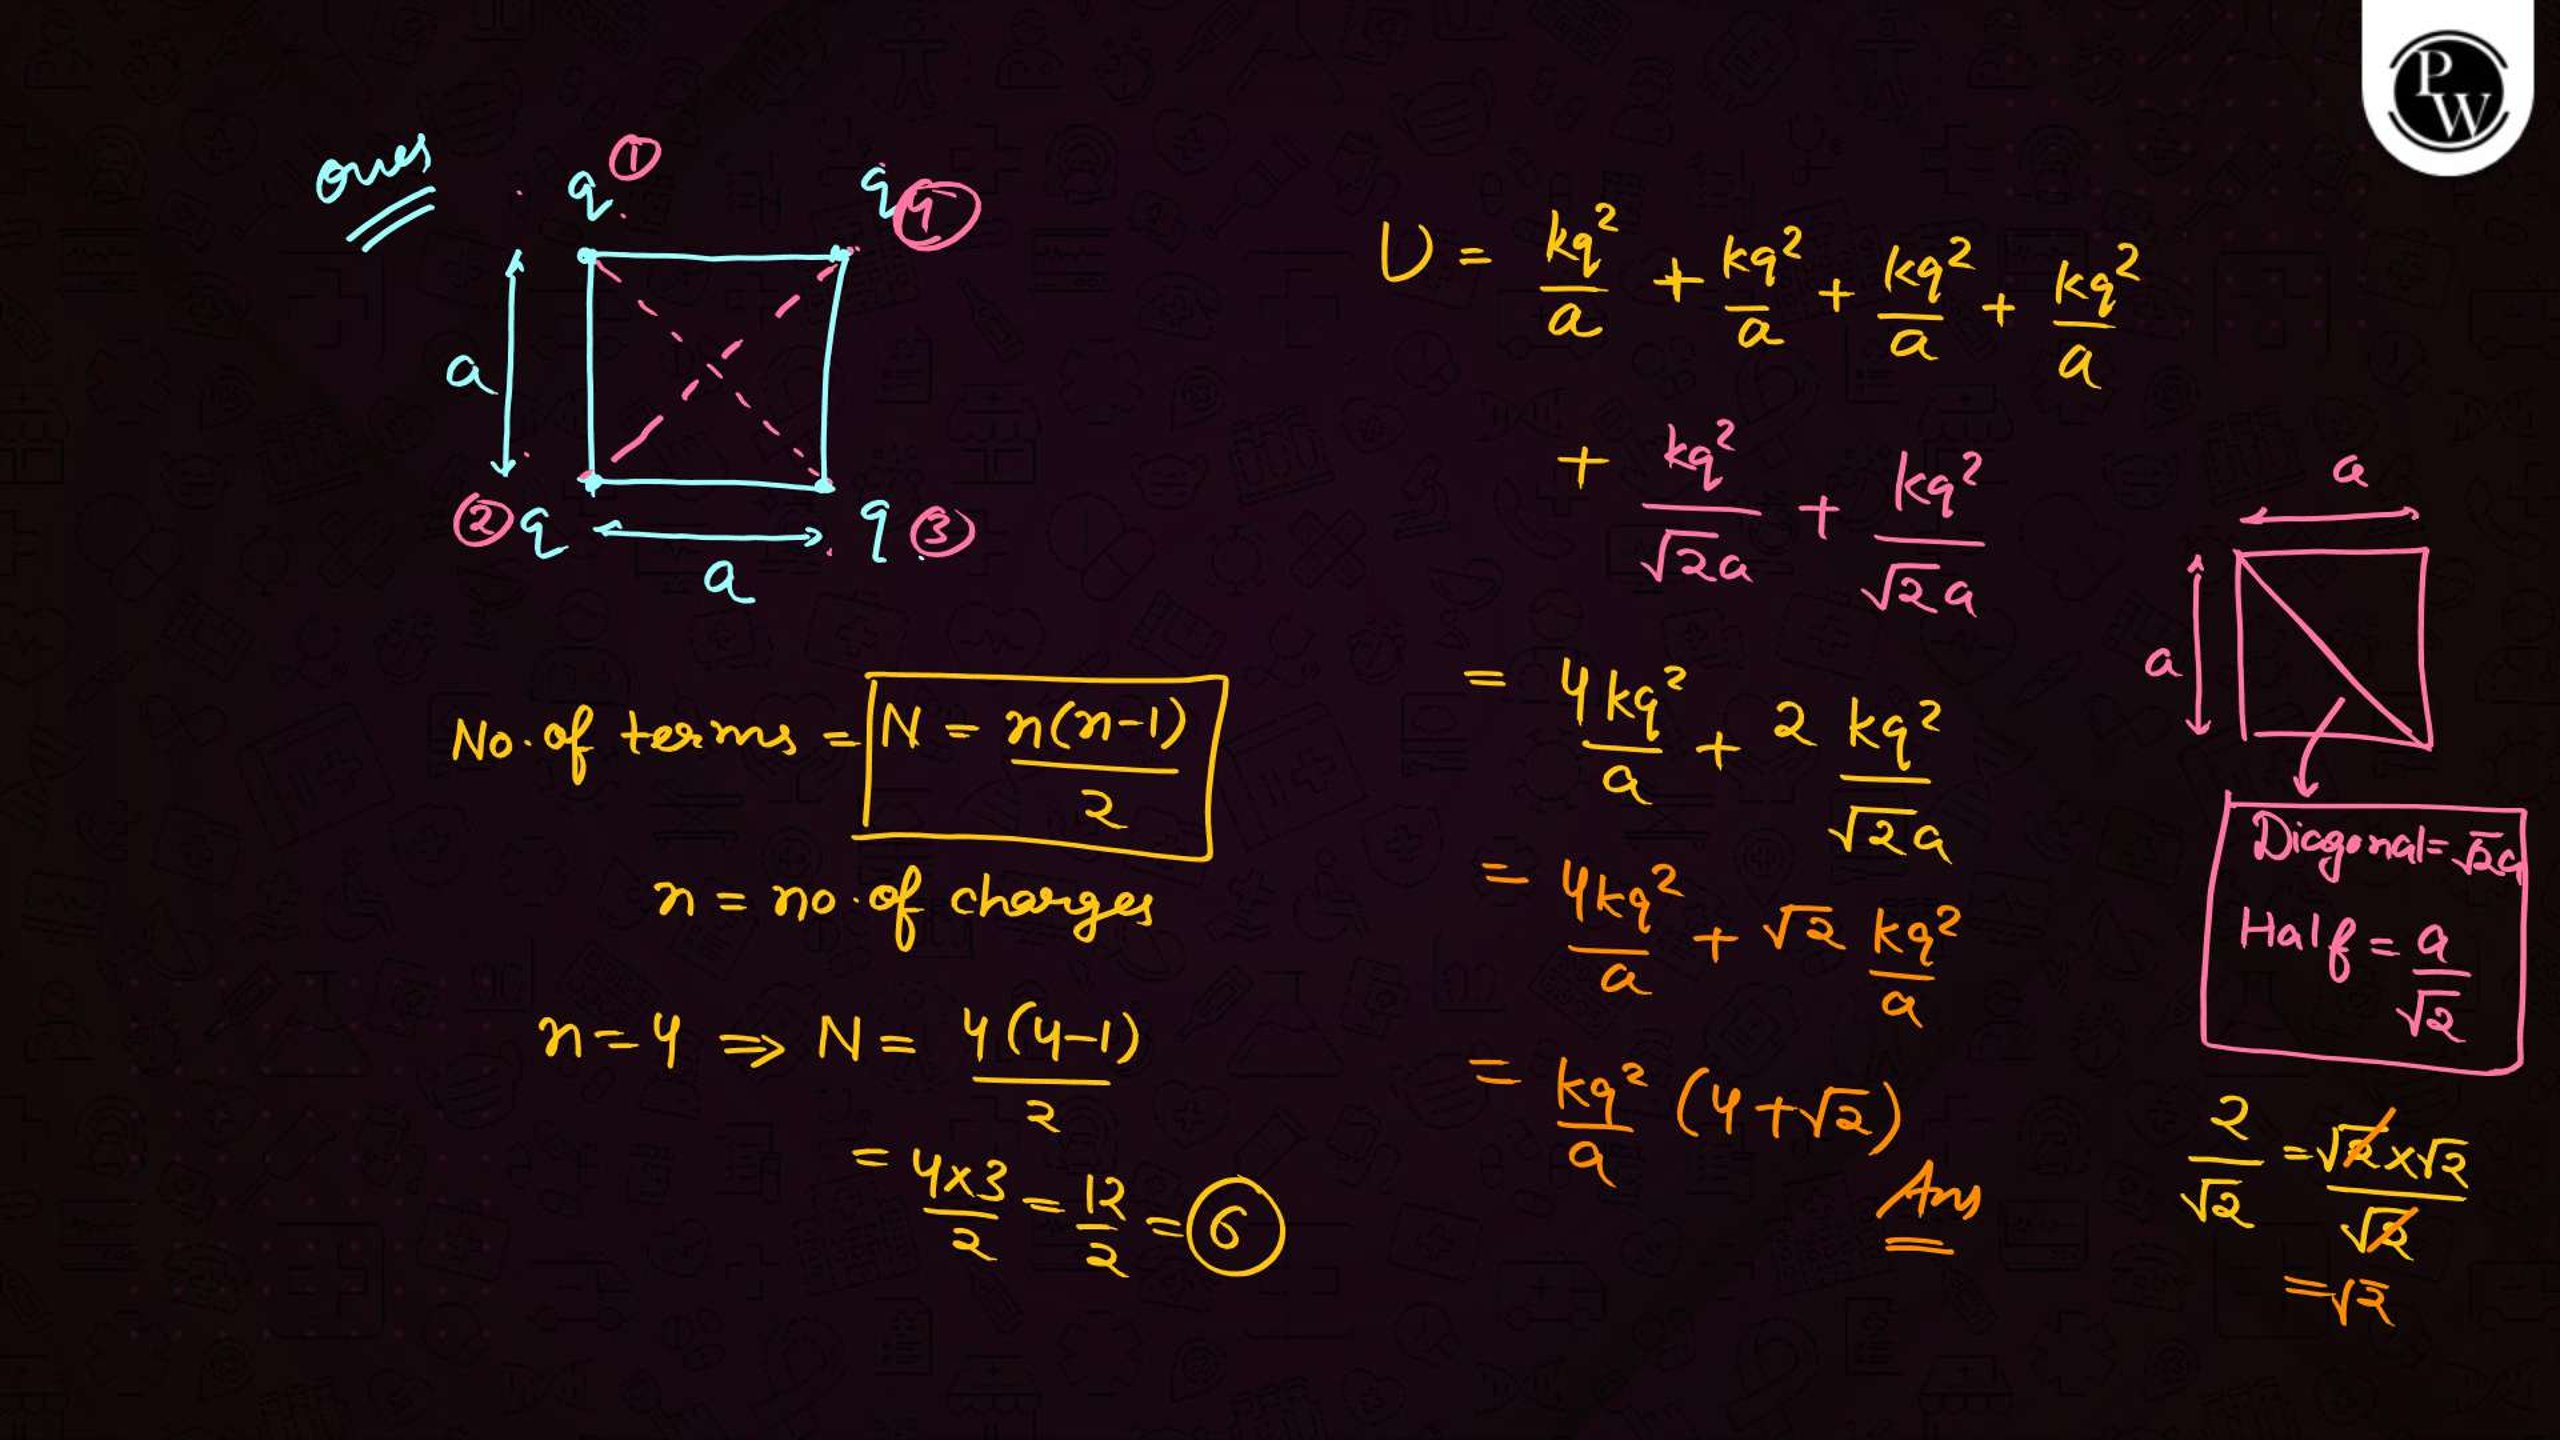 PW
Ques
q ① q ④
a
② q q ③
a
No. of terms = N = n(n-1)/2
n = no. of charges
n = 4 ⇒ N = 4(4-1)/2
= 4×3/2 = 12/2 = 6
U = kq²/a + kq²/a + kq²/a + kq²/a
+ kq²/√2a + kq²/√2a
= 4kq²/a + 2 kq²/√2a
= 4kq²/a + √2 kq²/a
= kq²/a (4+√2)
Ans
a
a
Diagonal = √2a
Half = a/√2
2/√2 = √2×√2/√2
= √2